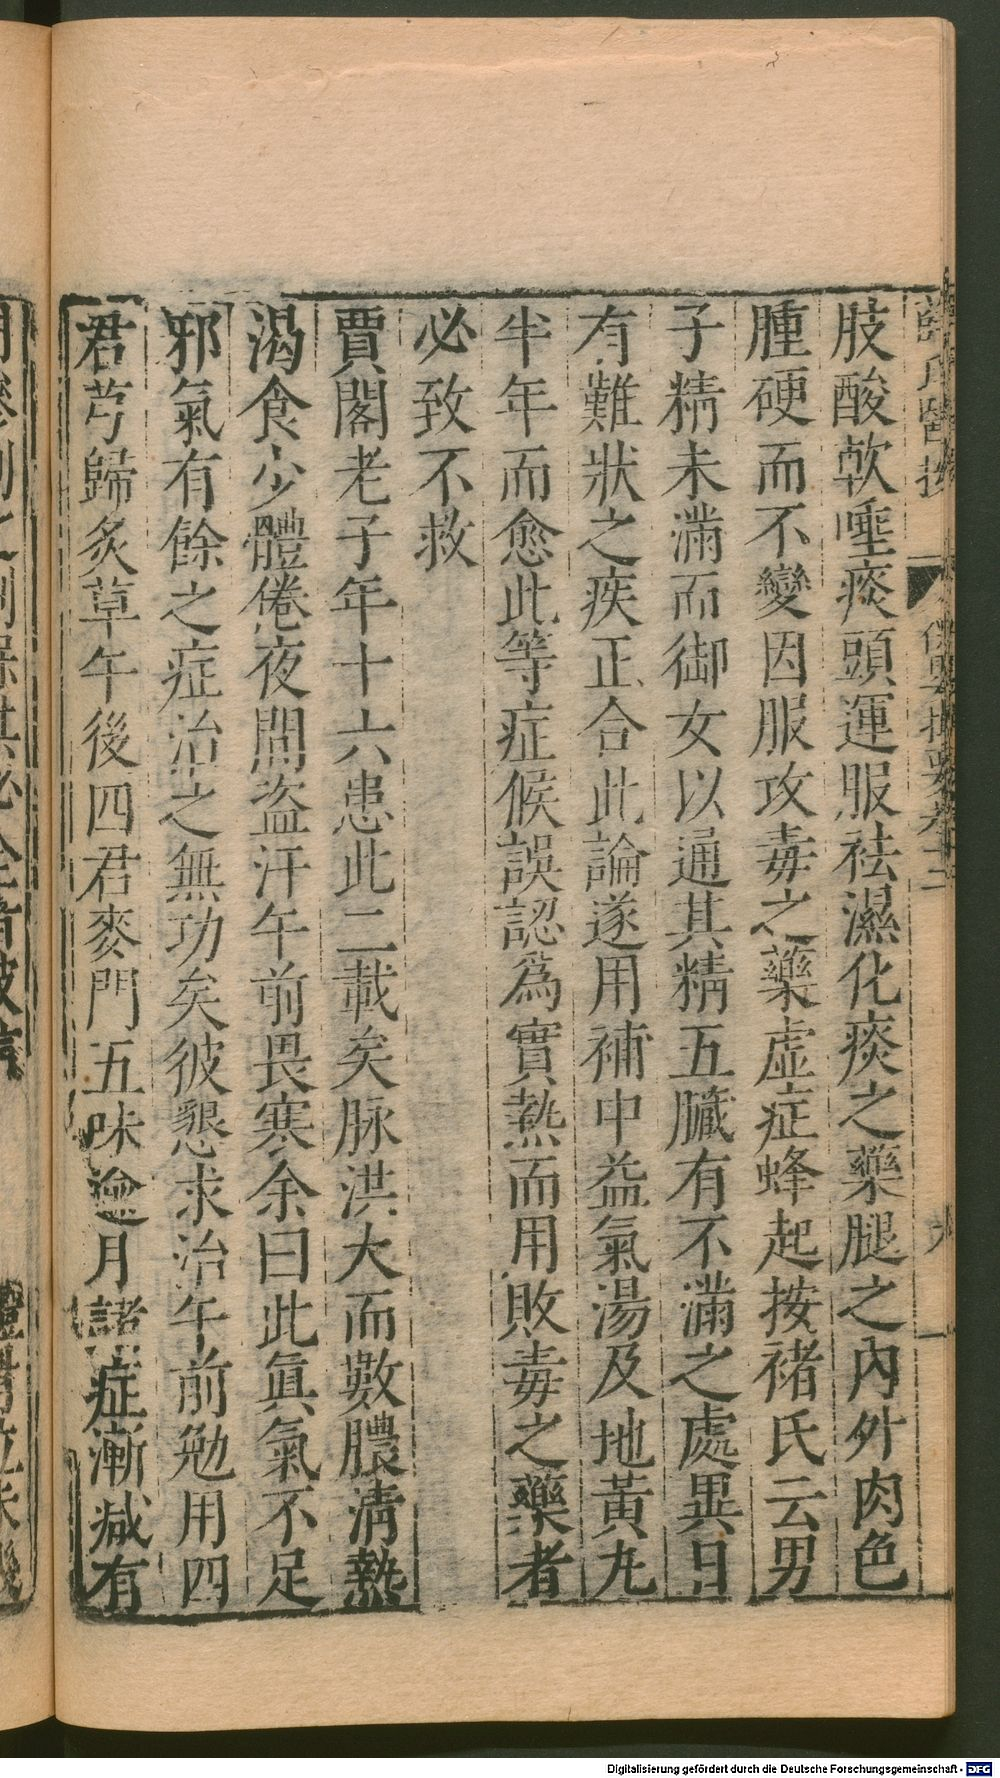 薛氏醫按 保嬰撮要卷十三
肢酸軟唾痰頭運服祛濕化痰之藥腿之內外肉色
腫硬而不變因服攻毒之藥虛症蜂起按褚氏云男
子精未滿而御女以通其精五臟有不滿之處異日
有難狀之疾正合此論遂用補中益氣湯及地黃丸
半年而愈此等症候誤認爲實熱而用敗毒之藥者
必致不救
賈閣老子年十六患此二載矣脉洪大而數膿淸熱
渴食少體倦夜間盗汗午前畏寒余曰此眞氣不足
邪氣有餘之症治之無功矣彼懇求治午前勉用四
君芎歸炙草午後四君麥門五味逾月諸症漸减有
Digitalisierung gefördert durch die Deutsche Forschungsgemeinschaft - DFG